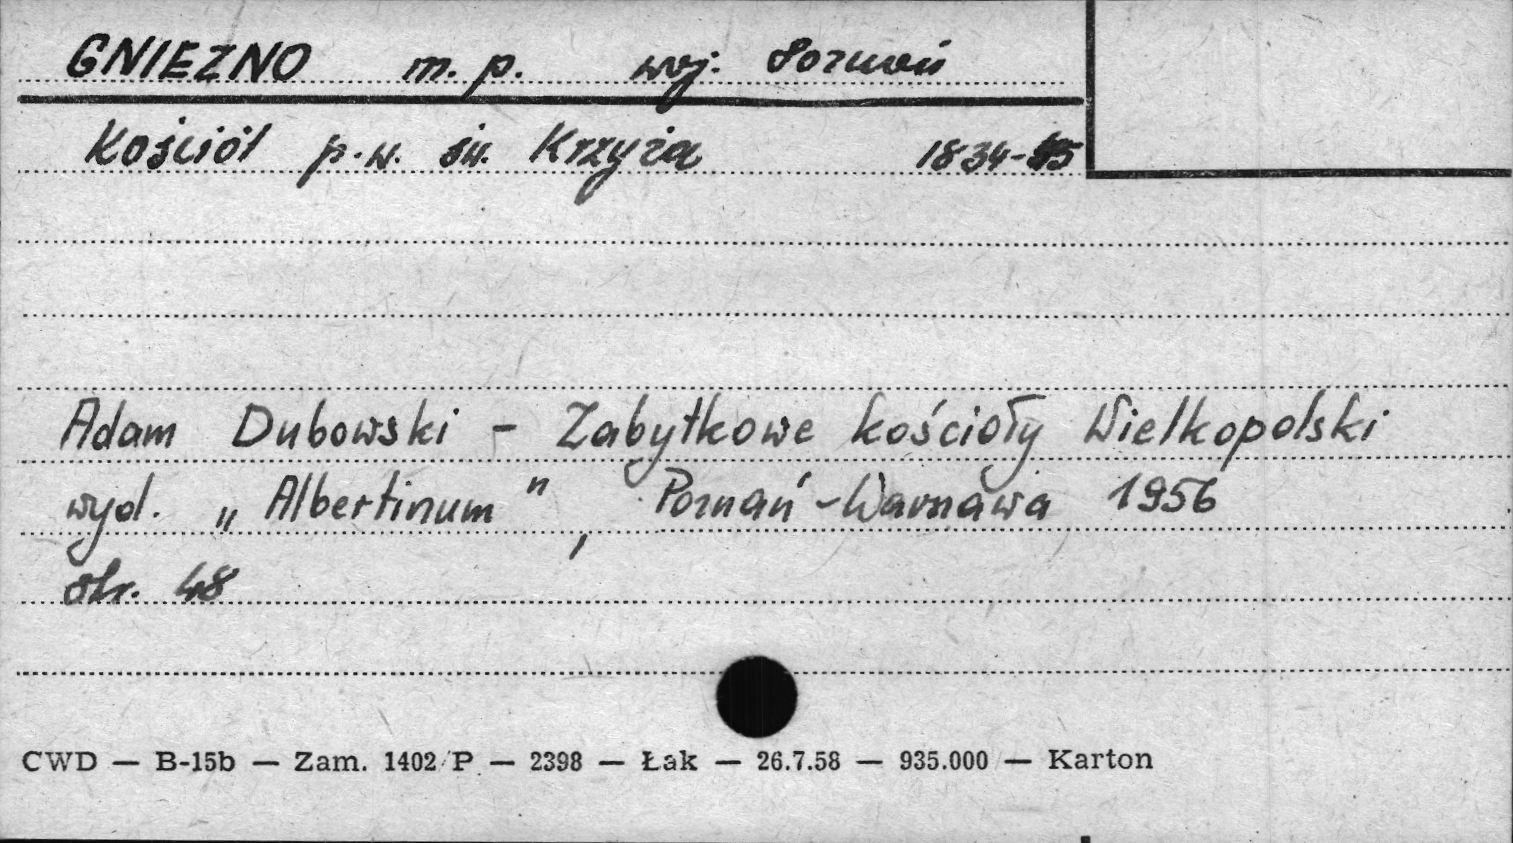 GNIEZNO m. p. woj. Poznań
Kościół p.w. św. Krzyża 1834-45
Adam Dubowski - Zabytkowe kościoły Wielkopolski
wyd. „Albertinum", Poznań-Warszawa 1956
str. 48
CWD — B-15b — Zam. 1402/P — 2398 — Łak — 26.7.58 — 935.000 — Karton